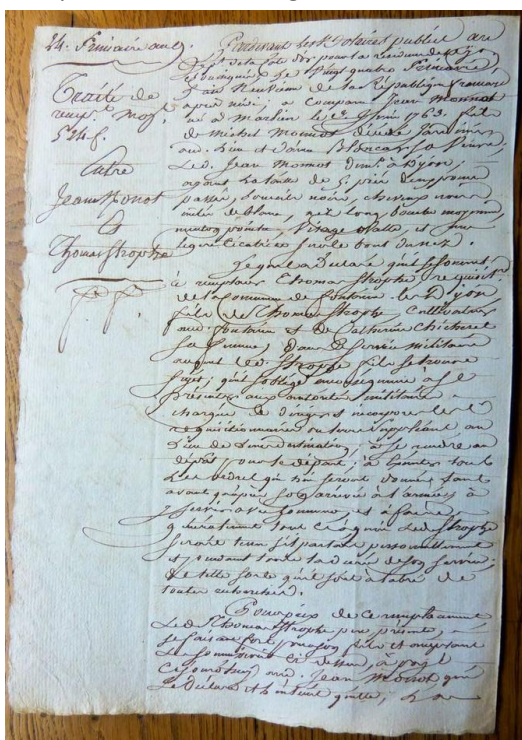 24. frimaire an 9.
Traité de
remp.t moy.t
524 f.
Entre
Jean Monot
&
Thomas Strophe
Pardevant les Notaires publics au
dép.t de la Côte d'or pour la résidence de Dijon
soussignés. Le Vingt quatre frimaire,
l'an Neuvième de la République française
après midi, a comparu Jean Monnot
né à le 1763. fils
de Michel Monnot décédé Jardinier
aud. lieu et d'Anne Blancar sa veuve,
Led. Jean Monnot dem.t à Dijon,
ayant la taille de 5. pieds
sourcils noirs, cheveux noirs
nez long, bouche moyenne,
menton pointu, Visage ovalle, et une
légère cicatrice sur le bout du nez.
Lequel a déclaré qu'il se soumet,
à remplacer Thomas Strophe
de la commune de fontaine les Dijon
fils de Thomas Strophe, Cultivateur
aud. fontaine et de Catherine Chicheret
sa femme, dans le service militaire
auquel led. Strophe fils se trouve
sujet; qu'il s'oblige en conséquence à se
présenter aux autorités militaires
chargées de diriger et incorporer les
réquisitionnaires ou leurs suppléants au
lieu de leur destination, à se rendre au
dépôt pour le départ, à tous
les ordres qui lui seront donnés tant
avant qu'après son arrivée à l'armée, à
y servir avec honneur, et à faire
généralement tout ce à quoi led. Strophe
seroit tenu s'il partait personnellement
et pendant toute la durée de son service,
de telle sorte qu'il soit à l'abri de
toutes recherches.
Pour prix de ce remplacement
Led. Thomas Strophe père présent,
se faisant fort pour son fils et
cy dessus, a payé
cejourd'hui aud. Jean Monot qui
le déclare et l'en tient quitte,